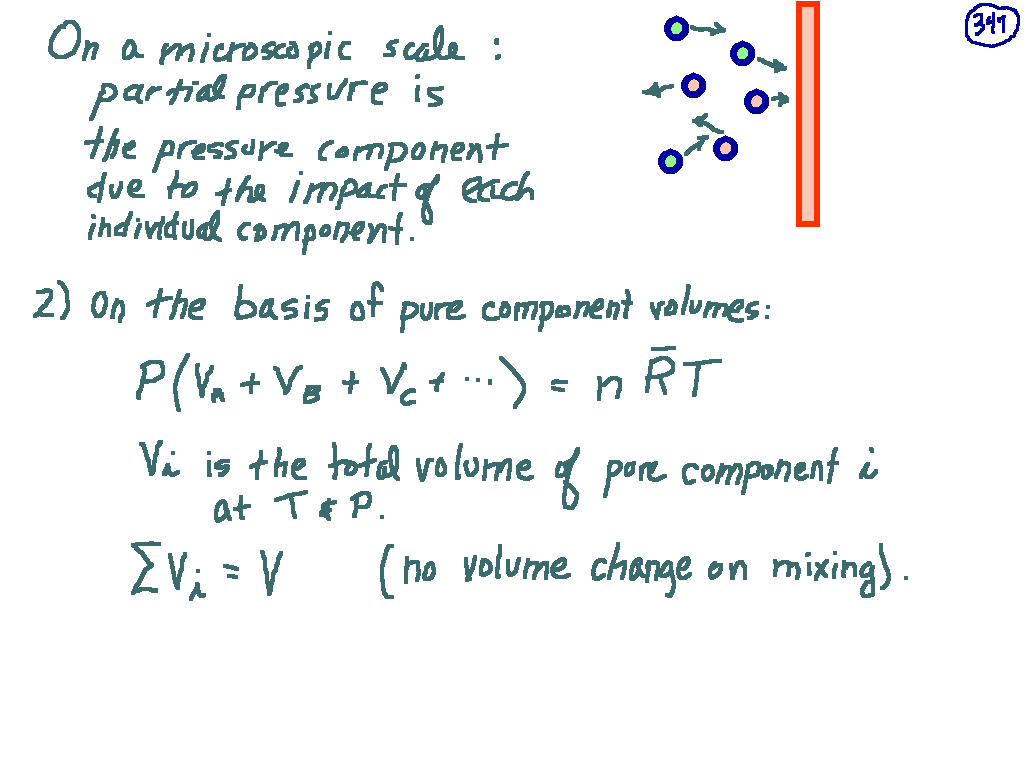 347
On a microscopic scale :
partial pressure is
the pressure component
due to the impact of each
individual component.
2) On the basis of pure component volumes:
P(V_A + V_B + V_C + ...) = n R̄T
Vi is the total volume of pure component i
at T & P.
ΣVi = V (no volume change on mixing).